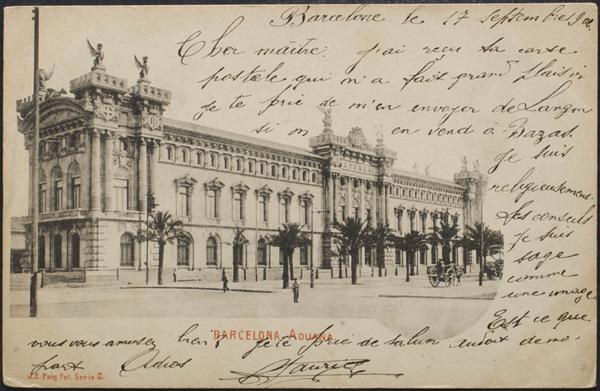 Barcelone le 17 Septembre
Cher maître. j'ai reçu ta carte
postale qui m'a fait grand plaisir
Je te prie de m'en envoyer de Langon
si on en vend à Bazas.
Je suis
religieusement
tes conseils
Je suis
sage
comme
une image
Est ce que
vous vous amusez bien? Je te prie de saluer
part Adios Maurice
BARCELONA. ADUANA
J.E. Puig Fot. Serie C.